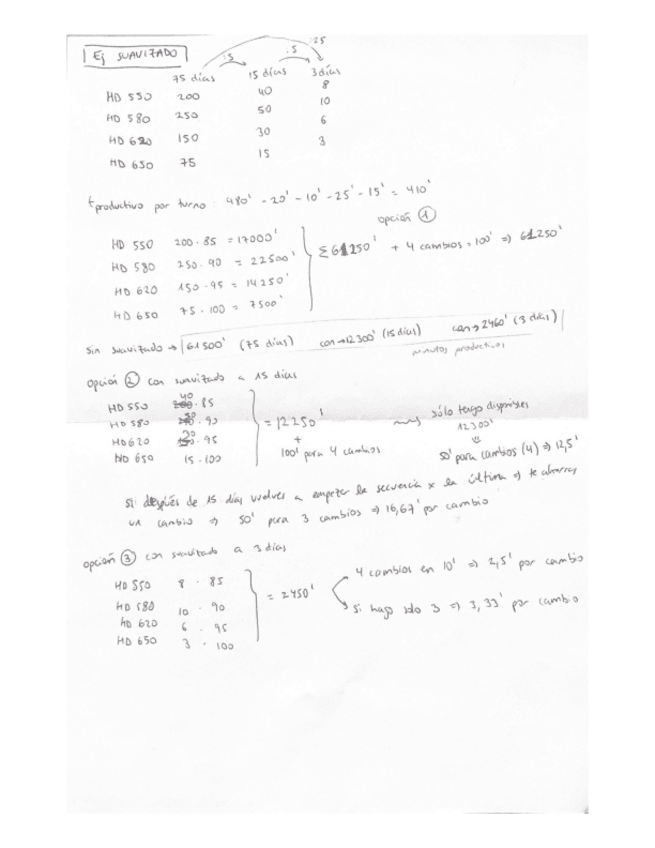 Ej SUAVIZADO
:25
:5 :5
75 días 15 días 3 días
HD 550 200 40 8
HD 580 250 50 10
HD 620 150 30 6
HD 650 75 15 3
t productivo por turno: 480' - 20' - 10' - 25' - 15' = 410'
opción 1
HD 550 200 · 85 = 17000'
HD 580 250 · 90 = 22500'
HD 620 150 · 95 = 14250'
HD 650 75 · 100 = 7500'
Σ 61250' + 4 cambios = 100' => 61250'
Sin suavizado → 61500' (75 días) con → 12300' (15 días) con → 2460' (3 días)
minutos productivos
opción 2 con suavizado a 15 días
HD 550 40 · 85
HD 580 · 90
HD 620 30 · 95
HD 650 15 · 100
= 12250'
+
100' para 4 cambios
sólo tengo disponibles
12300'
50' para cambios (4) => 12,5'
si después de 15 días vuelves a empezar la secuencia x la última => te ahorras
un cambio => 50' para 3 cambios => 16,67' por cambio
opción 3 con suavizado a 3 días
HD 550 8 · 85
HD 580 10 · 90
HD 620 6 · 95
HD 650 3 · 100
= 2450'
4 cambios en 10' => 2,5' por cambio
si hago solo 3 => 3,33' por cambio